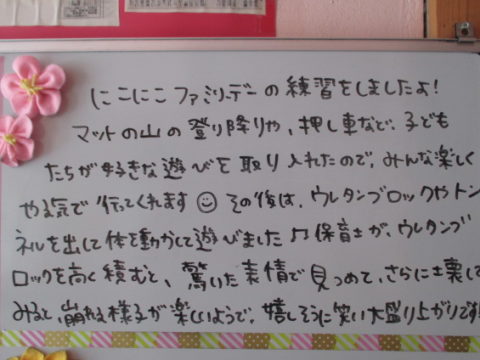 にこにこファミリーデーの練習をしましたよ!
マットの山の登り降りや、押し車など、子ども
たちが好きな遊びを取り入れたので、みんな楽しく
やる気で行ってくれます☺その後は、ウレタンブロックやトン
ネルを出して体を動かして遊びました♫保育士が、ウレタンブ
ロックを高く積むと、驚いた表情で見つめて、さらに土裏して
みると、崩れる様子が楽しいようで、嬉しそうに笑い大盛り上がりです!